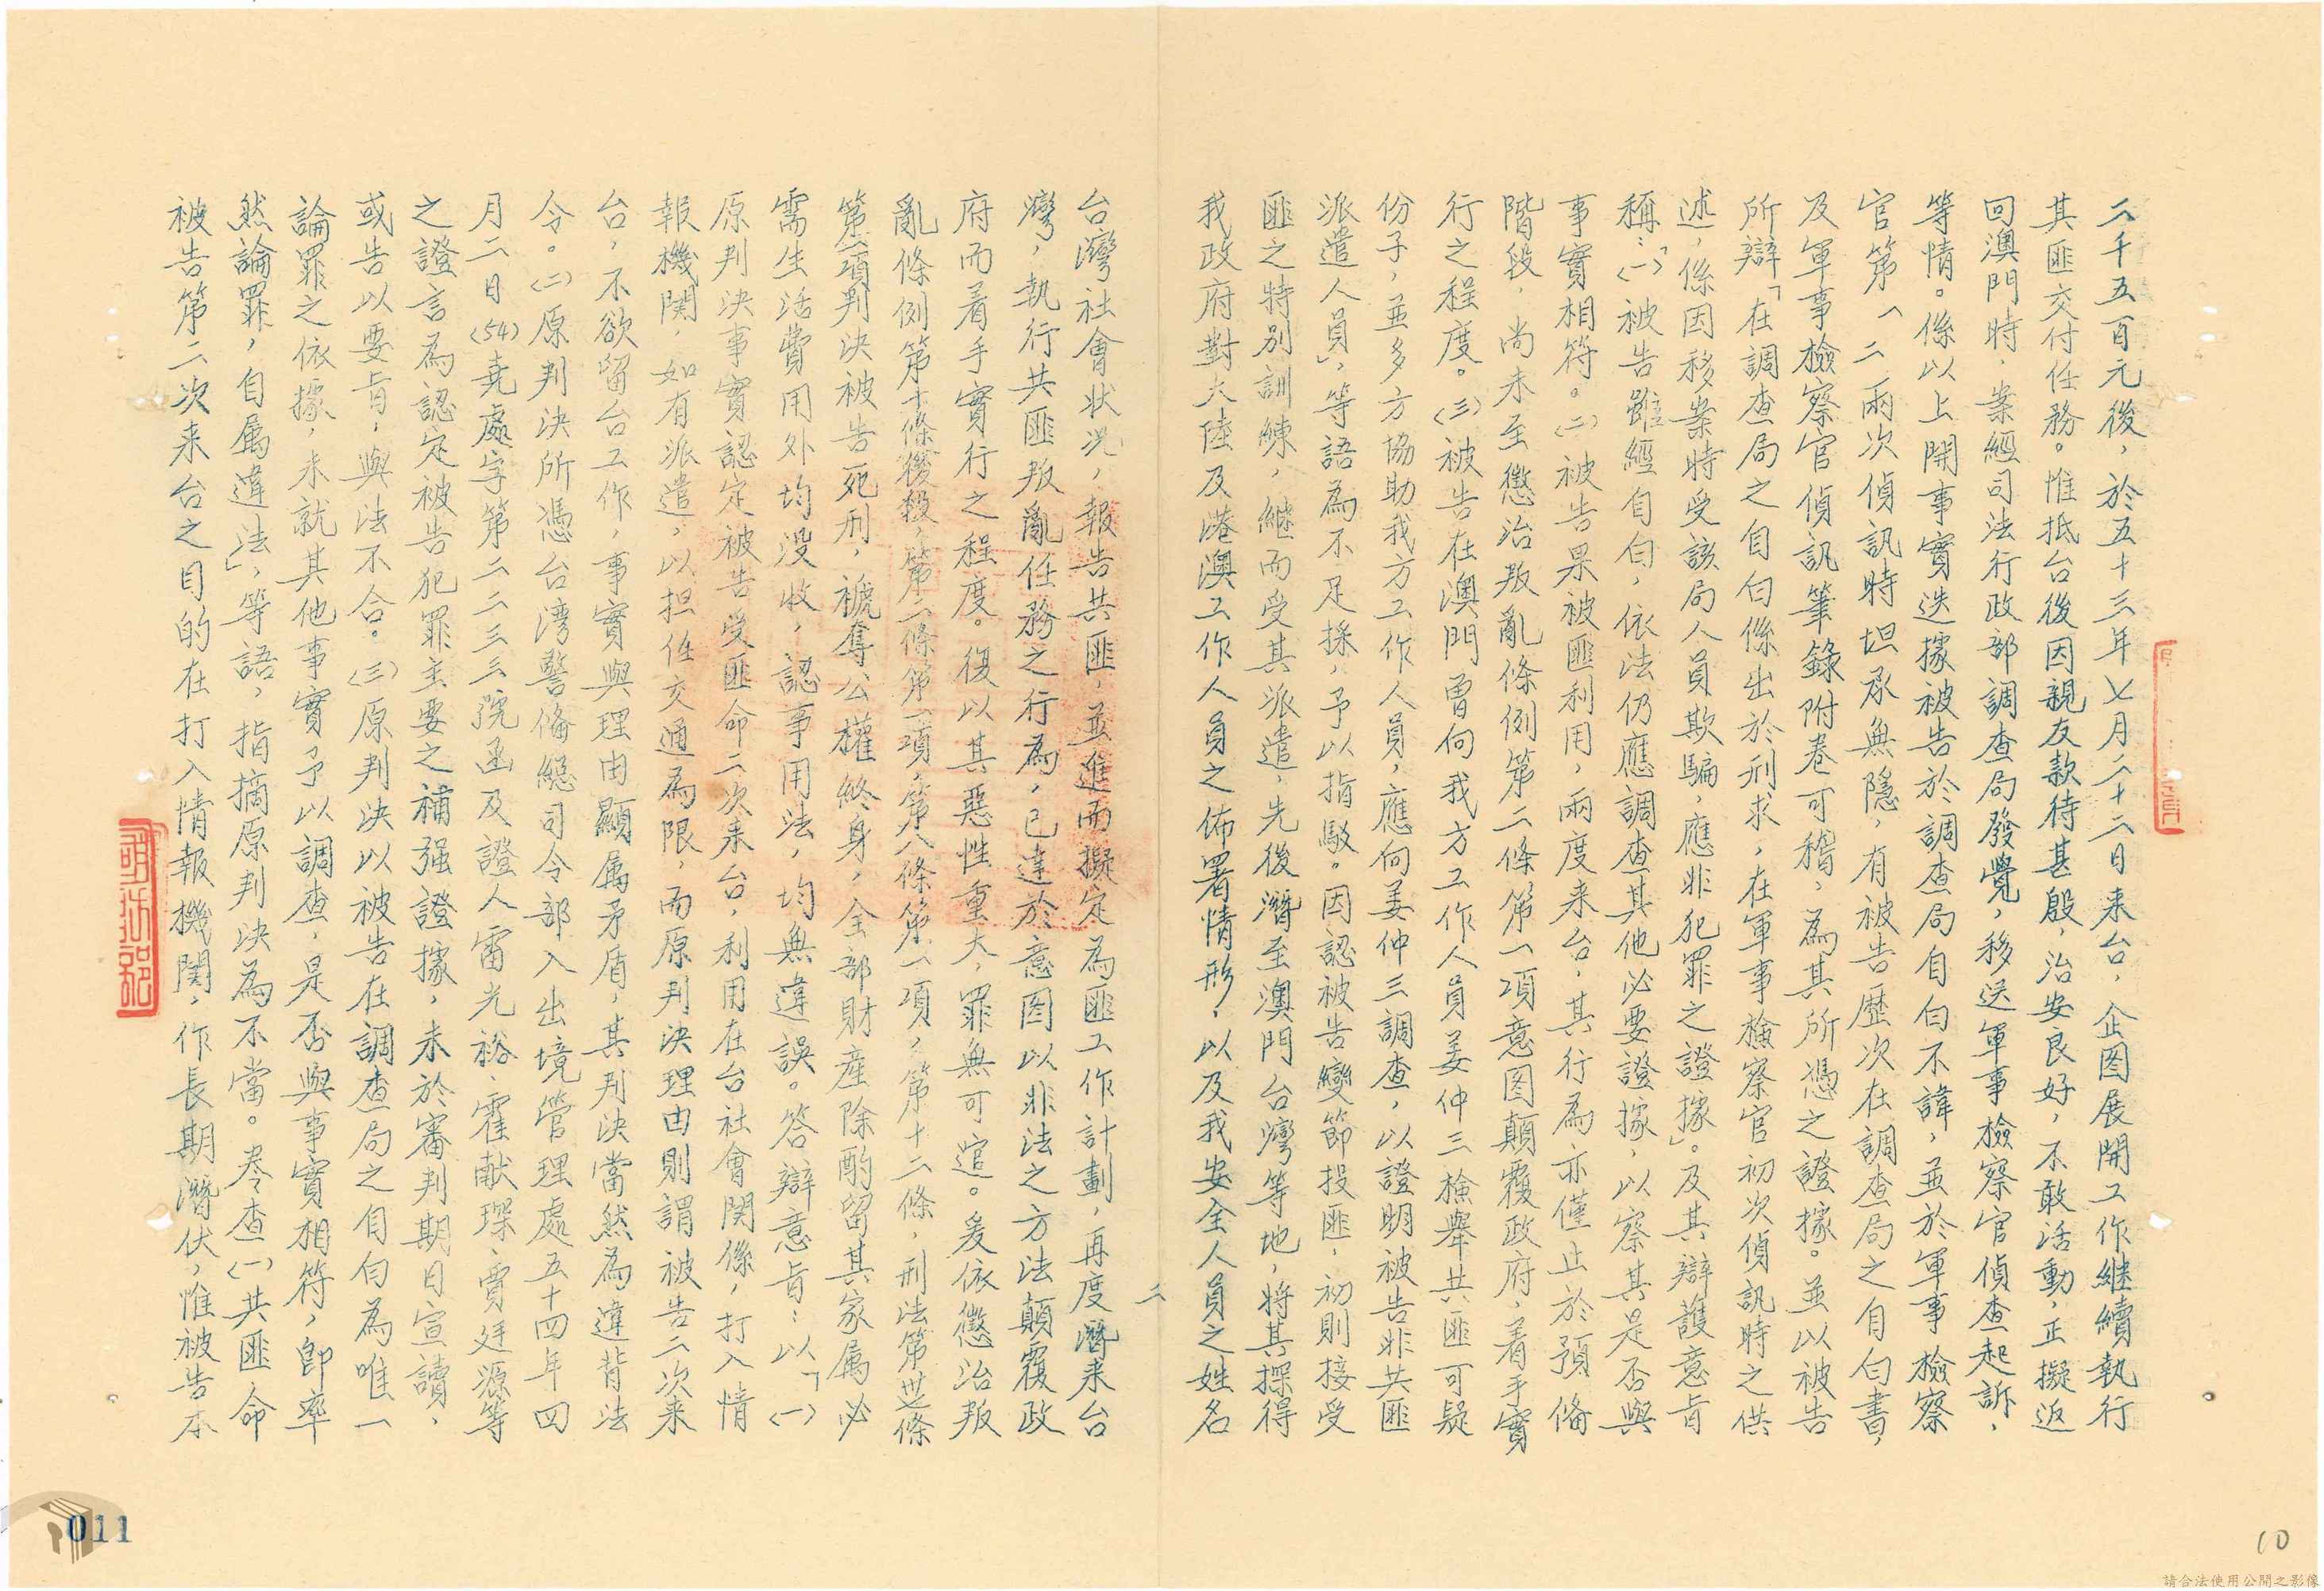 二千五百元後，於五十三年七月二十二日來台，企圖展開工作繼續執行
其匪交付任務。惟抵台後因親友款待甚殷，治安良好，不敢活動，正擬返
回澳門時，案經司法行政部調查局發覺，移送軍事檢察官偵查起訴，
等情。係以上開事實迭據被告於調查局自白不諱，並於軍事檢察
官第一二兩次偵訊時坦承無隱，有被告歷次在調查局之自白書，
及軍事檢察官偵訊筆錄附卷可稽，為其所憑之證據。並以被告
所辯「在調查局之自白係出於刑求，在軍事檢察官初次偵訊時之供
述，係因移案時受該局人員欺騙，應非犯罪之證據」。及其辯護意旨
稱：「㈠被告雖經自白，依法仍應調查其他必要證據，以察其是否與
事實相符。㈡被告果被匪利用，兩度來台，其行為亦僅止於預備
階段，尚未至懲治叛亂條例第二條第一項意圖顛覆政府，着手實
行之程度。㈢被告在澳門曾向我方工作人員姜仲三檢舉共匪可疑
份子，並多方協助我方工作人員，應向姜仲三調查，以證明被告非共匪
派遣人員」，等語為不足採，予以指駁。因認被告變節投匪，初則接受
匪之特別訓練，繼而受其派遣，先後潛至澳門台灣等地，將其探得
我政府對大陸及港澳工作人員之佈署情形，以及我安全人員之姓名
二
台灣社會狀況，報告共匪，並進而擬定為匪工作計劃，再度潛來台
灣，執行共匪叛亂任務之行為，已達於意圖以非法之方法顛覆政
府而着手實行之程度。復以其惡性重大，罪無可逭。爰依懲治叛
亂條例第十條後段，第二條第一項，第八條第一項，第十二條，刑法第卅七條
第一項判決被告死刑，褫奪公權終身，全部財產除酌留其家屬必
需生活費用外均沒收，認事用法，均無違誤。答辯意旨：以「㈠
原判決事實認定被告受匪命二次來台，利用在台社會関係，打入情
報機関，如有派遣，以担任交通為限，而原判決理由則謂被告二次來
台，不欲留台工作，事實與理由顯屬矛盾，其判決當然為違背法
令。㈡原判決所憑台湾警備總司令部入出境管理處五十四年四
月二日(54)堯處字第二二三三號函及證人雷光裕、霍献琛、賈廷源等
之證言為認定被告犯罪主要之補强證據，未於審判期日宣讀，
或告以要旨，與法不合。㈢原判決以被告在調查局之自白為唯一
論罪之依據，未就其他事實予以調查，是否與事實相符，即率
然論罪，自屬違法」，等語，指摘原判決為不當。卷查㈠共匪命
被告第二次來台之目的在打入情報機関，作長期潛伏，惟被告本
011
10
請合法使用公開之影像